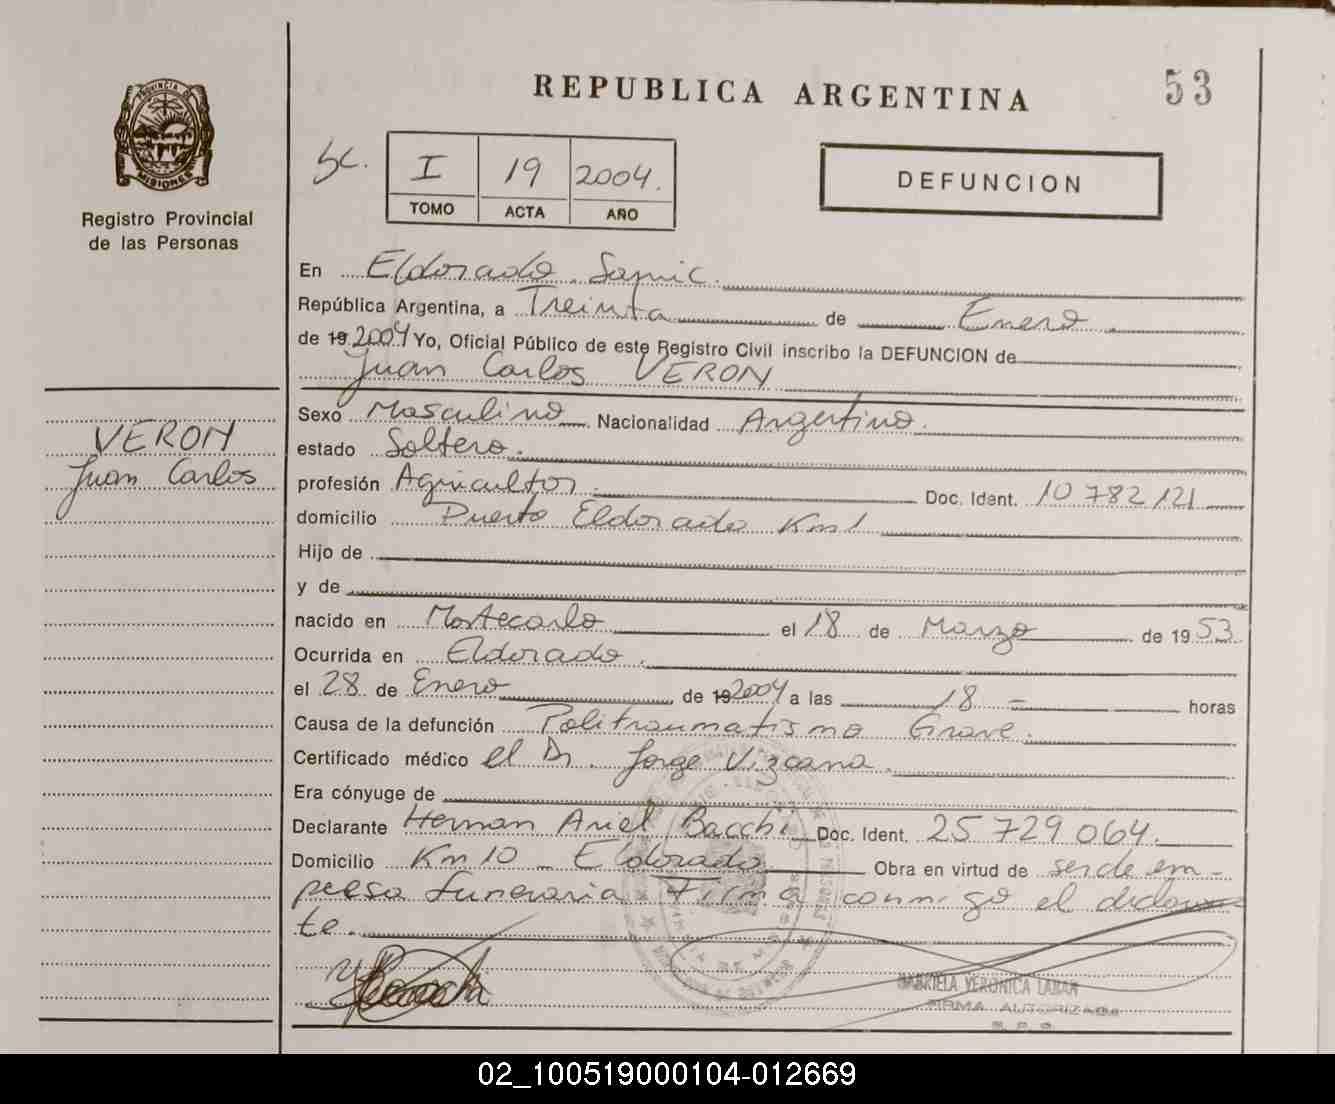 REPUBLICA ARGENTINA
53
PROVINCIA DE
MISIONES
Registro Provincial
de las Personas
I 19 2004.
TOMO ACTA AÑO
DEFUNCION
En Eldorado. Samic.
República Argentina, a Treinta de Enero
de 19 2004 Yo, Oficial Público de este Registro Civil inscribo la DEFUNCION de
Juan Carlos VERON
VERON
Juan Carlos
Sexo Masculino Nacionalidad Argentino.
estado Soltero.
profesión Agricultor. Doc. Ident. 10 782 121
domicilio Puerto Eldorado Km1
Hijo de
y de
nacido en Montecarlo el 18 de Marzo de 1953
Ocurrida en Eldorado.
el 28 de Enero de 19 2004 a las 18 - horas
Causa de la defunción Politraumatismo Grave.
Certificado médico el Dr. Jorge Vizcana.
Era cónyuge de
Declarante Hernan Ariel Bacchi Doc. Ident. 25 729 064.
Domicilio Km 10 - Eldorado Obra en virtud de ser de em-
presa funeraria Firma conmigo el declaran
te.
GABRIELA VERONICA LABAR
FIRMA AUTORIZADA
02_100519000104-012669